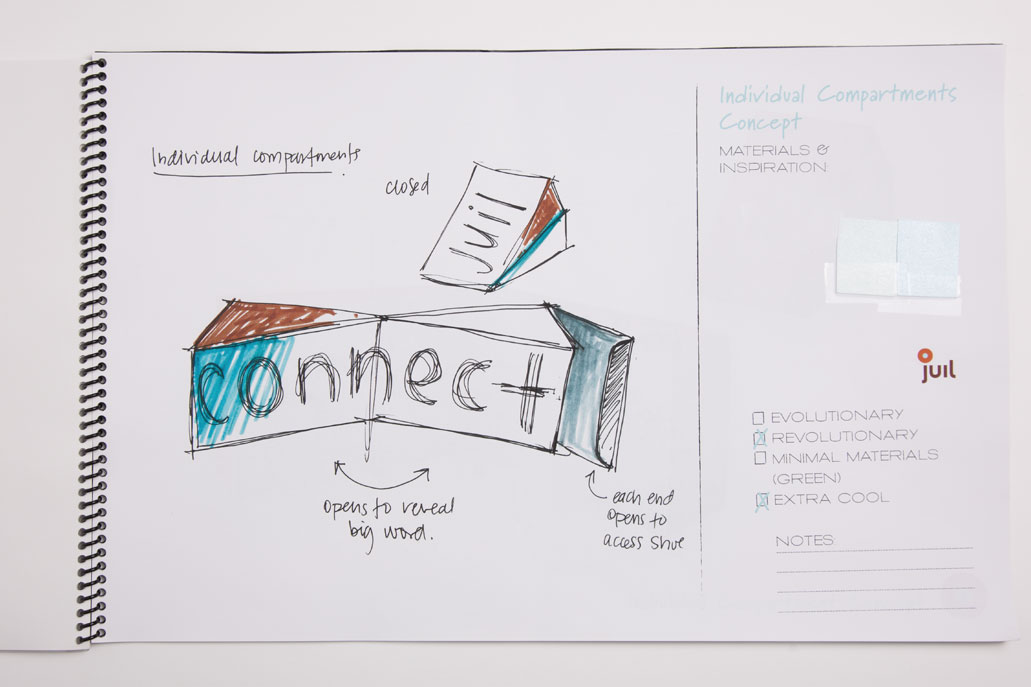 Individual compartments
closed
juil
connect
opens to reveal
big word.
each end
opens to
access shoe
Individual Compartments
Concept
MATERIALS &
INSPIRATION
juil
EVOLUTIONARY
REVOLUTIONARY
MINIMAL MATERIALS
(GREEN)
EXTRA COOL
NOTES: